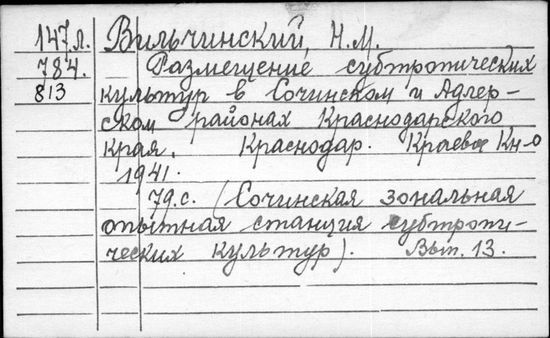 147л. Вильчинский, Н.М.
784. Размещение субтропических
813 культур в Сочинском и Адлер-
ском районах Краснодарского
края. Краснодар. Краевое Кн-о
1941.
79.с. (Сочинская зональная
опытная станция субтропи-
ческих культур). Вып. 13.